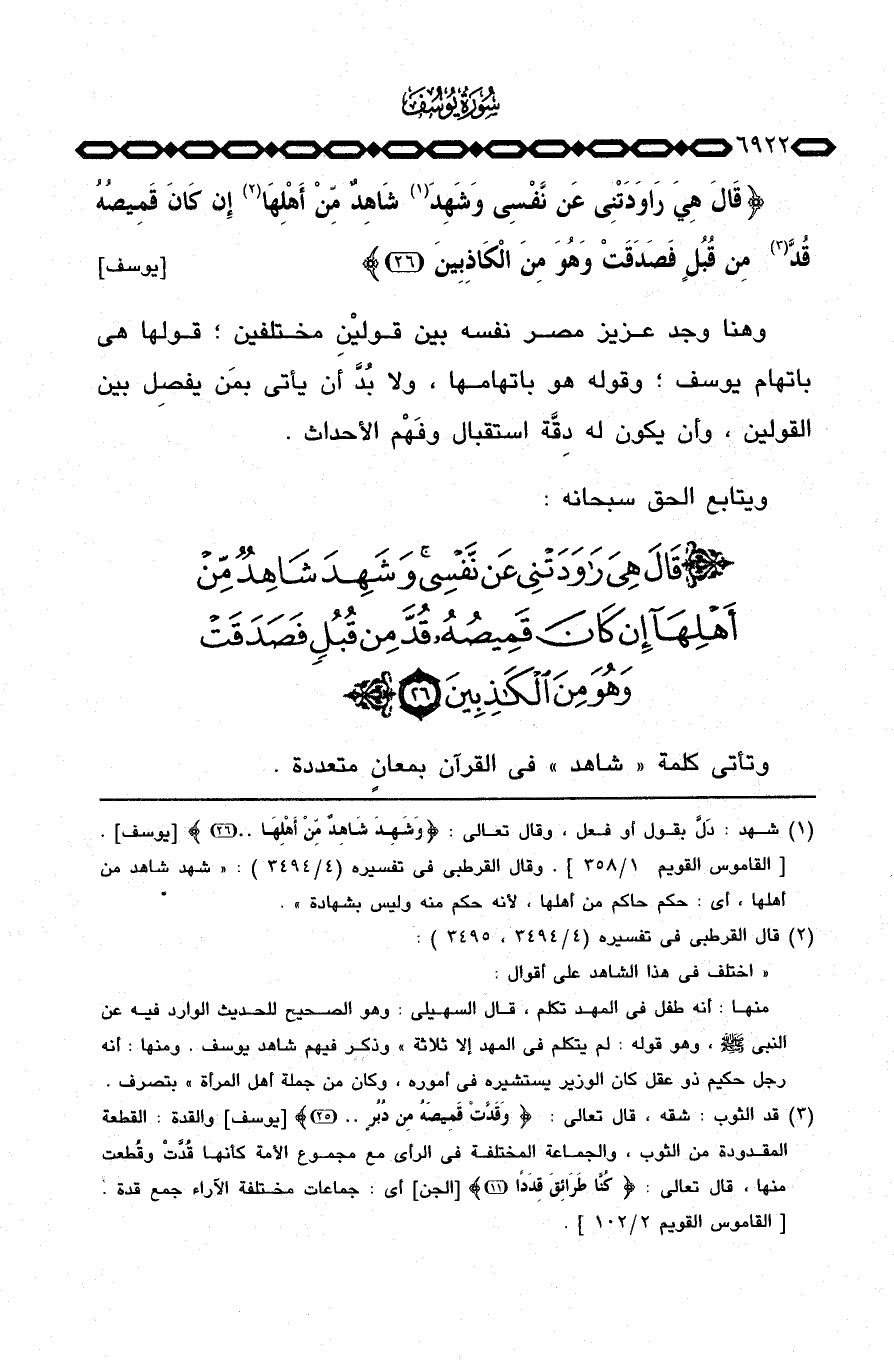 سُورَةُ يُوسُفَ
٦٩٢٢
﴿ قَالَ هِيَ رَاوَدَتْنِى عَن نَّفْسِى وَشَهِدَ(١) شَاهِدٌ مِّنْ أَهْلِهَا(٢) إِن كَانَ قَمِيصُهُ
قُدَّ(٣) مِن قُبُلٍ فَصَدَقَتْ وَهُوَ مِنَ الْكَاذِبِينَ (٢٦) ﴾ [يوسف]
وهنا وجد عزيز مصر نفسه بين قوليْنِ مختلفين ؛ قولها هى
باتهام يوسف ؛ وقوله هو باتهامها ، ولا بُدَّ أن يأتى بمَن يفصِل بين
القولين ، وأن يكون له دِقَّة استقبال وفَهْم الأحداث .
ويتابع الحق سبحانه :
قَالَ هِىَ رَٰوَدَتْنِى عَن نَّفْسِى ۚ وَشَهِدَ شَاهِدٌ مِّنْ
أَهْلِهَآ إِن كَانَ قَمِيصُهُۥ قُدَّ مِن قُبُلٍ فَصَدَقَتْ
وَهُوَ مِنَ ٱلْكَٰذِبِينَ ٢٦
وتأتى كلمة « شاهد » فى القرآن بمعانٍ متعددة .
(١) شهد : دَلَّ بقول أو فعل ، وقال تعالى : ﴿ وَشَهِدَ شَاهِدٌ مِّنْ أَهْلِهَا ..(٢٦) ﴾ [يوسف] .
[ القاموس القويم ٣٥٨/١ ] . وقال القرطبى فى تفسيره (٣٤٩٤/٤ ) : « شهد شاهد من
أهلها ، أى : حكم حاكم من أهلها ، لأنه حكم منه وليس بشهادة » .
(٢) قال القرطبى فى تفسيره (٣٤٩٤/٤ ، ٣٤٩٥ ) :
« اختلف فى هذا الشاهد على أقوال :
منها : أنه طفل فى المهد تكلم ، قال السهيلى : وهو الصحيح للحديث الوارد فيه عن
النبى ﷺ ، وهو قوله : لم يتكلم فى المهد إلا ثلاثة » وذكر فيهم شاهد يوسف . ومنها : أنه
رجل حكيم ذو عقل كان الوزير يستشيره فى أموره ، وكان من جملة أهل المرأة » بتصرف .
(٣) قد الثوب : شقه ، قال تعالى : ﴿ وَقَدَّتْ قَمِيصَهُ مِن دُبُرٍ .. (٢٥)﴾ [يوسف] والقدة : القطعة
المقدودة من الثوب ، والجماعة المختلفة فى الرأى مع مجموع الأمة كأنها قُدَّتْ وقُطعت
منها ، قال تعالى : ﴿ كُنَّا طَرَائِقَ قِدَدًا (١١)﴾ [الجن] أى : جماعات مختلفة الآراء جمع قدة .
[ القاموس القويم ١٠٢/٢ ] .